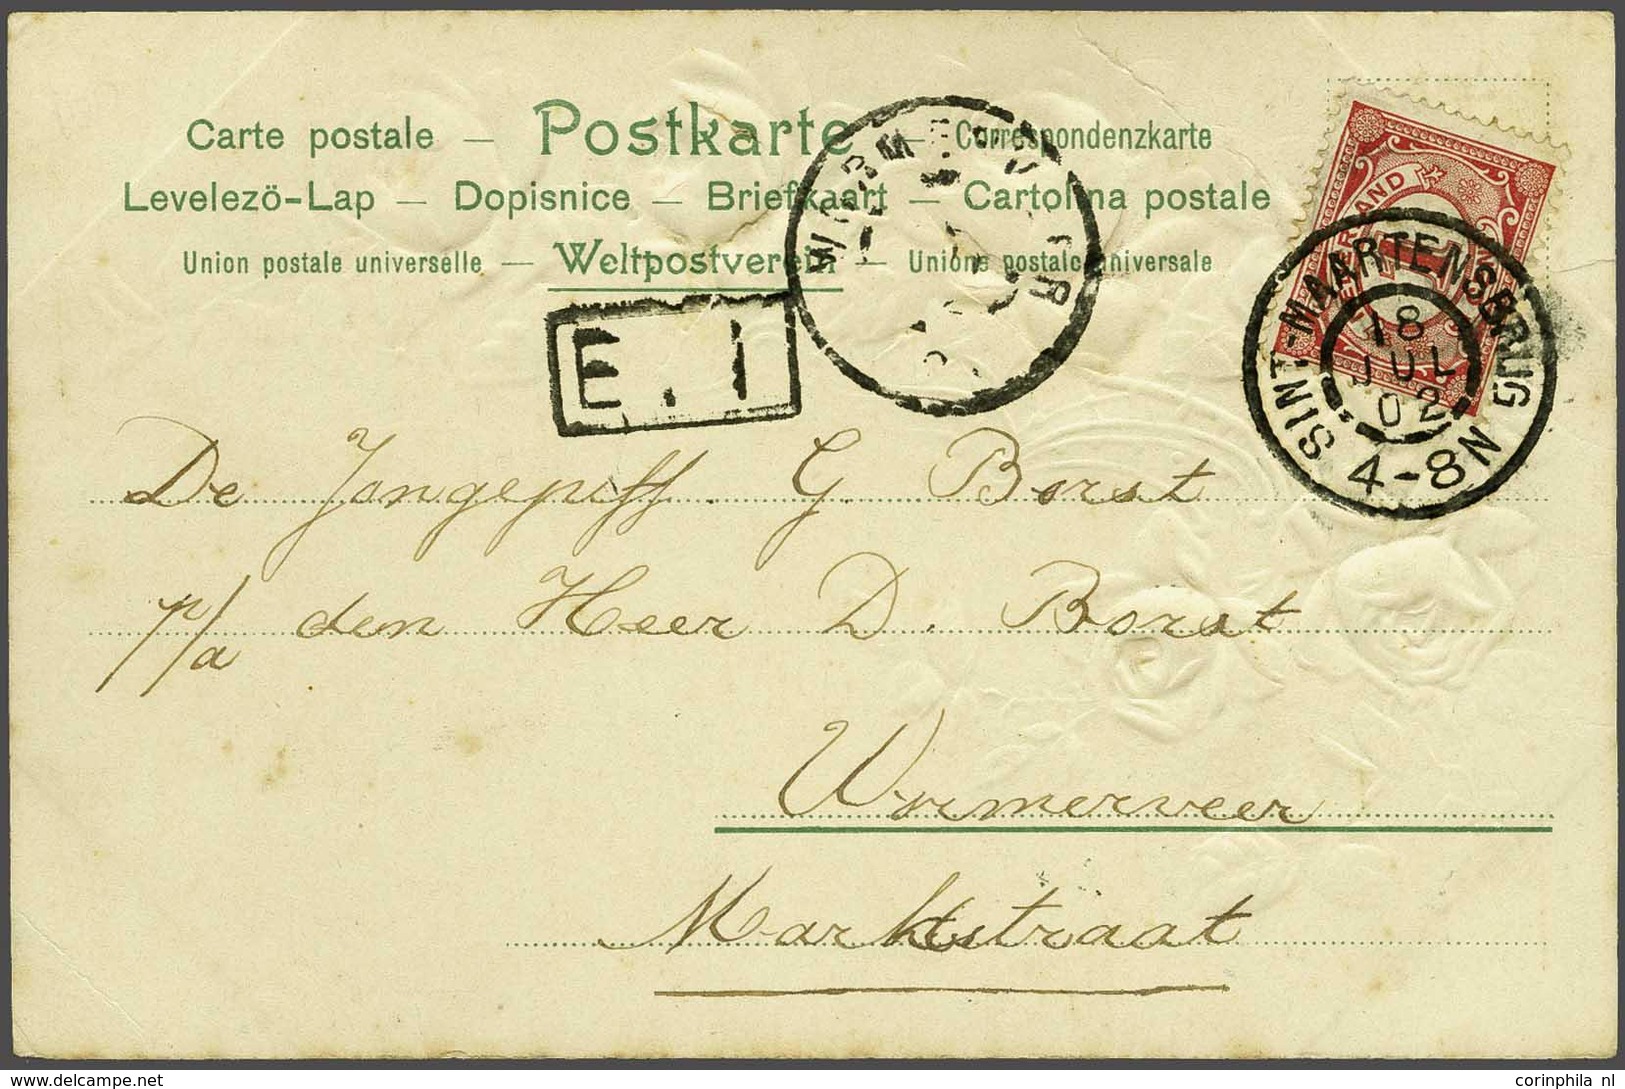 Carte postale — Postkarte — Correspondenzkarte
Levelező-Lap — Dopisnice — Briefkaart — Cartolina postale
Union postale universelle — Weltpostverein — Unione postale universale
WORMERVEER
E. I
SINT-MAARTENSBRUG N
18
JUL
02
4-8
De Jongejuff. G. Borst
p/a den Heer D. Borst
Wormerveer
Marktstraat
© the-saleroom, delcampe.net
corinphila nl